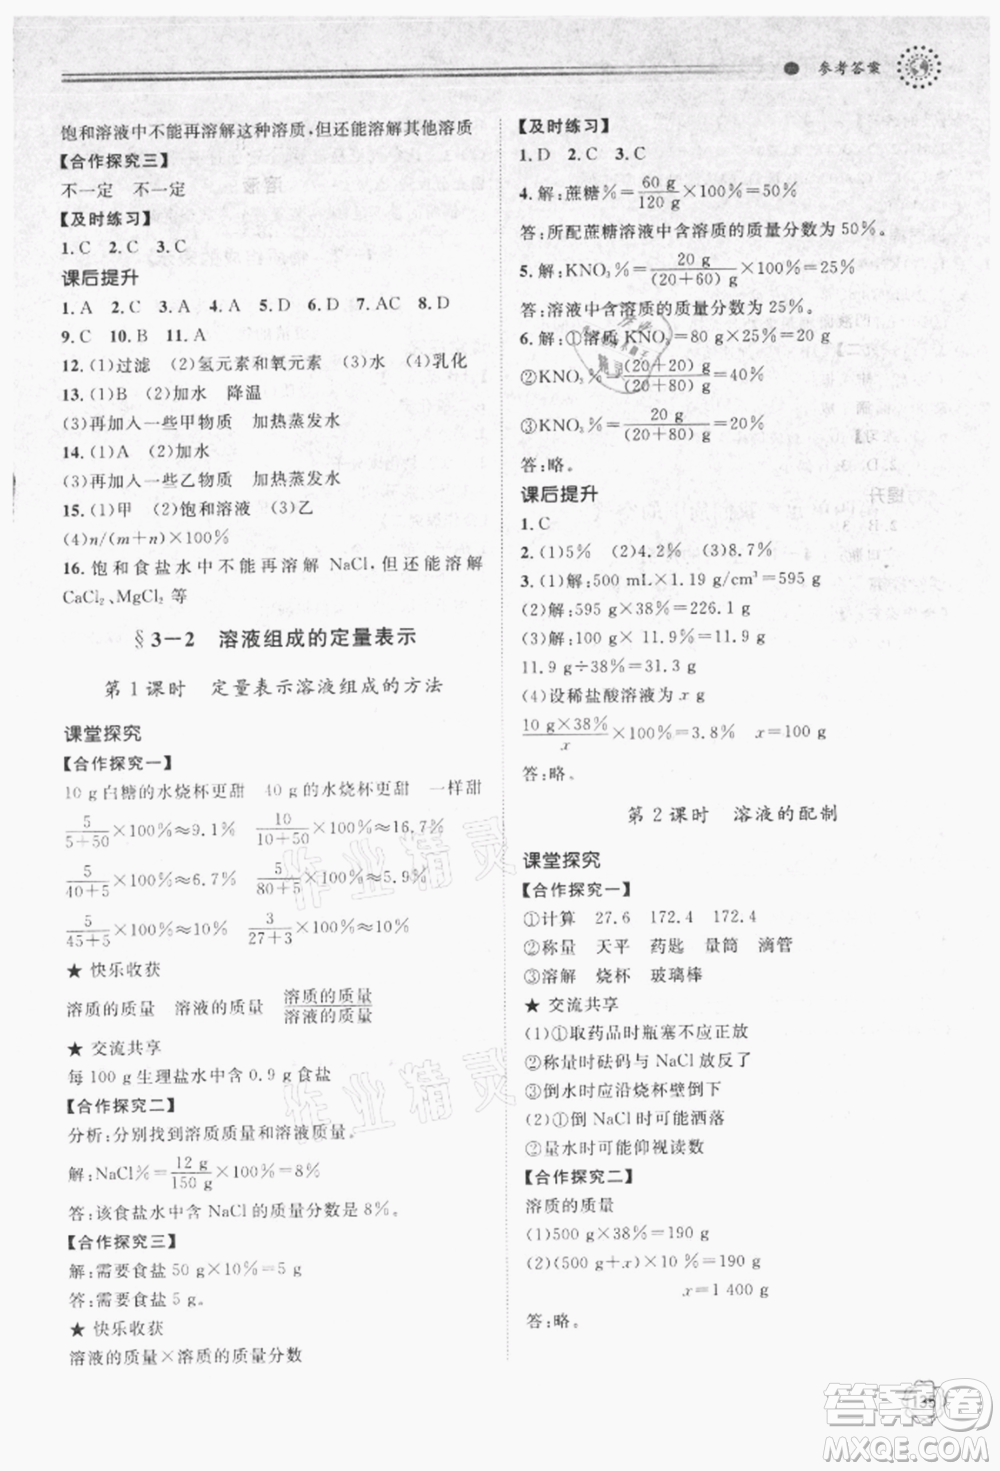 参考答案
饱和溶液中不能再溶解这种溶质,但还能溶解其他溶质
【合作探究三】
不一定 不一定
【及时练习】
1.C 2.C 3.C
课后提升
1.A 2.C 3.A 4.A 5.D 6.D 7.AC 8.D
9.C 10.B 11.A
12.(1)过滤 (2)氢元素和氧元素 (3)水 (4)乳化
13.(1)B (2)加水 降温
(3)再加入一些甲物质 加热蒸发水
14.(1)A (2)加水
(3)再加入一些乙物质 加热蒸发水
15.(1)甲 (2)饱和溶液 (3)乙
(4)n/(m+n)×100%
16.饱和食盐水中不能再溶解 NaCl,但还能溶解
CaCl₂、MgCl₂ 等
§3-2 溶液组成的定量表示
第1课时 定量表示溶液组成的方法
课堂探究
【合作探究一】
10 g白糖的水烧杯更甜 40 g水烧杯更甜 一样甜
5/(5+50)×100%≈9.1% 10/(10+50)×100%≈16.7%
5/(40+5)×100%≈ 5/(80+5)×100%≈5.9%
5/(45+5)×100%=10% 3/(27+3)×100%=10%
★ 快乐收获
溶质的质量 溶液的质量 溶质的质量/溶液的质量
★ 交流共享
每 100 g 生理盐水中含 0.9 g 食盐
【合作探究二】
分析:分别找到溶质质量和溶液质量。
解:NaCl%=12 g/150 g×100%=8%
答:该食盐水中含 NaCl 的质量分数是 8%。
【合作探究三】
解:需要食盐 50 g×10%=5 g
答:需要食盐 5 g。
★ 快乐收获
溶液的质量×溶质的质量分数
【及时练习】
1.D 2.C 3.C
4.解:蔗糖%=60 g/120 g×100%=50%
答:所配蔗糖溶液中含溶质的质量分数为 50%。
5.解:KNO₃%=20 g/(20+60) g×100%=25%
答:溶液中含溶质的质量分数为 25%。
6.解:①溶质 KNO₃=80 g×25%=20 g
②KNO₃%=(20+20) g/(20+80) g=40%
③KNO₃%=20 g/(20+80) g=20%
答:略。
课后提升
1.C
2.(1)5% (2)4.2% (3)7.7%
3.(1)解:500 mL×1.19 g/cm³=595 g
(2)解:595 g×38%=226.1 g
(3)解:
11.9 g÷38%=31.3 g
(4)设稀盐酸溶液为 x g
10 g×38%/x=3.8% x=100 g
答:略。
第2课时 溶液的配制
课堂探究
【合作探究一】
①计算 27.6 172.4 172.4
②称量 天平 药匙 量筒 滴管
③溶解 烧杯 玻璃棒
★ 交流共享
(1)①取药品时瓶塞不应正放
②称量时砝码与 NaCl 放反了
③倒水时应沿烧杯壁倒下
(2)①倒 NaCl 时可能洒落
②量水时可能仰视读数
【合作探究二】
溶质的质量
(1)500 g×38%=190 g
(2)(500g+x)×10%=190 g
x=1 400 g
答:略。
135
作业精灵
作业精灵
答案圈
MXQE.COM